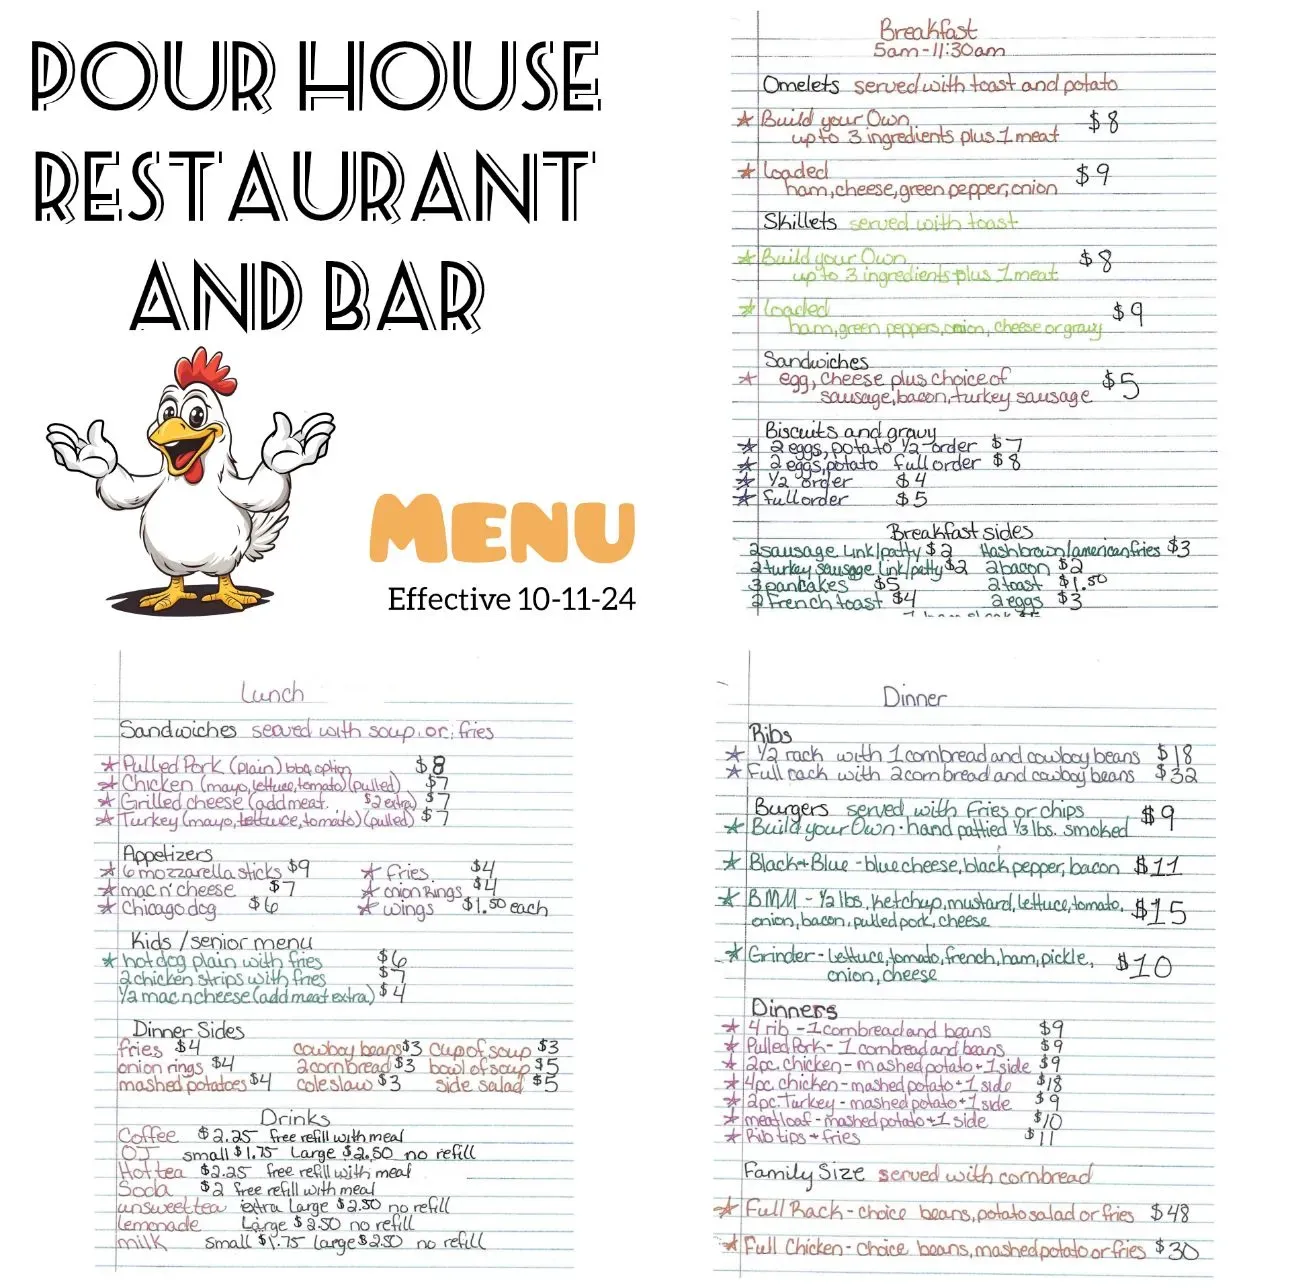 POUR HOUSE
RESTAURANT
AND BAR
MENU
Effective 10-11-24
Breakfast
5am-11:30am
Omelets served with toast and potato
Build your Own $8
up to 3 ingredients plus 1 meat
Loaded $9
ham, cheese, green pepper, onion
Skillets served with toast
Build your Own $8
up to 3 ingredients plus 1 meat
Loaded $9
ham, green peppers, onion, cheese or gravy
Sandwiches
egg, cheese plus choice of $5
sausage, bacon, turkey sausage
Biscuits and gravy
2 eggs, potato 1/2 order $7
2 eggs, potato full order $8
1/2 order $4
full order $5
Breakfast sides
2 sausage link/patty $2 Hashbrown/american fries $3
2 turkey sausage link/patty $2 2 bacon $2
3 pancakes $5 2 toast $1.50
2 French toast $4 2 eggs $3
Lunch
Sandwiches served with soup or fries
Pulled Pork (plain) bbq option $8
Chicken (mayo, lettuce, tomato) (pulled) $7
Grilled cheese (add meat. $2 extra) $7
Turkey (mayo, lettuce, tomato) (pulled) $7
Appetizers
6 mozzarella sticks $9 fries $4
mac n' cheese $7 onion Rings $4
Chicago dog $6 wings $1.50 each
Kids / senior menu
hot dog plain with fries $6
2 chicken strips with fries $7
1/2 mac n cheese (add meat extra) $4
Dinner Sides
fries $4 cowboy beans $3 Cup of soup $3
onion rings $4 2 cornbread $3 bowl of soup $5
mashed potatoes $4 coleslaw $3 side salad $5
Drinks
Coffee $2.25 free refill with meal
OJ small $1.75 Large $2.50 no refill
Hot tea $2.25 free refill with meal
Soda $2 free refill with meal
unsweet tea extra Large $2.50 no refill
lemonade Large $2.50 no refill
milk small $1.75 large $2.50 no refill
Dinner
Ribs
1/2 rack with 1 cornbread and cowboy beans $18
Full rack with 2 cornbread and cowboy beans $32
Burgers served with Fries or chips
Build your Own - hand pattied 1/3 lbs. smoked $9
Black + Blue - blue cheese, black pepper, bacon $11
BMM - 1/2 lbs, ketchup, mustard, lettuce, tomato, $15
onion, bacon, pulled pork, cheese
Grinder - Lettuce, tomato, french, ham, pickle, $10
onion, cheese
Dinners
4 rib - 1 cornbread and beans $9
Pulled Pork - 1 cornbread and beans $9
2pc. chicken - mashed potato + 1 side $9
4pc. chicken - mashed potato + 1 side $18
2pc. Turkey - mashed potato + 1 side $9
meatloaf - mashed potato + 1 side $10
Rib tips + fries $11
Family Size served with cornbread
Full Rack - choice beans, potato salad or fries $48
Full Chicken - choice beans, mashed potato or fries $30